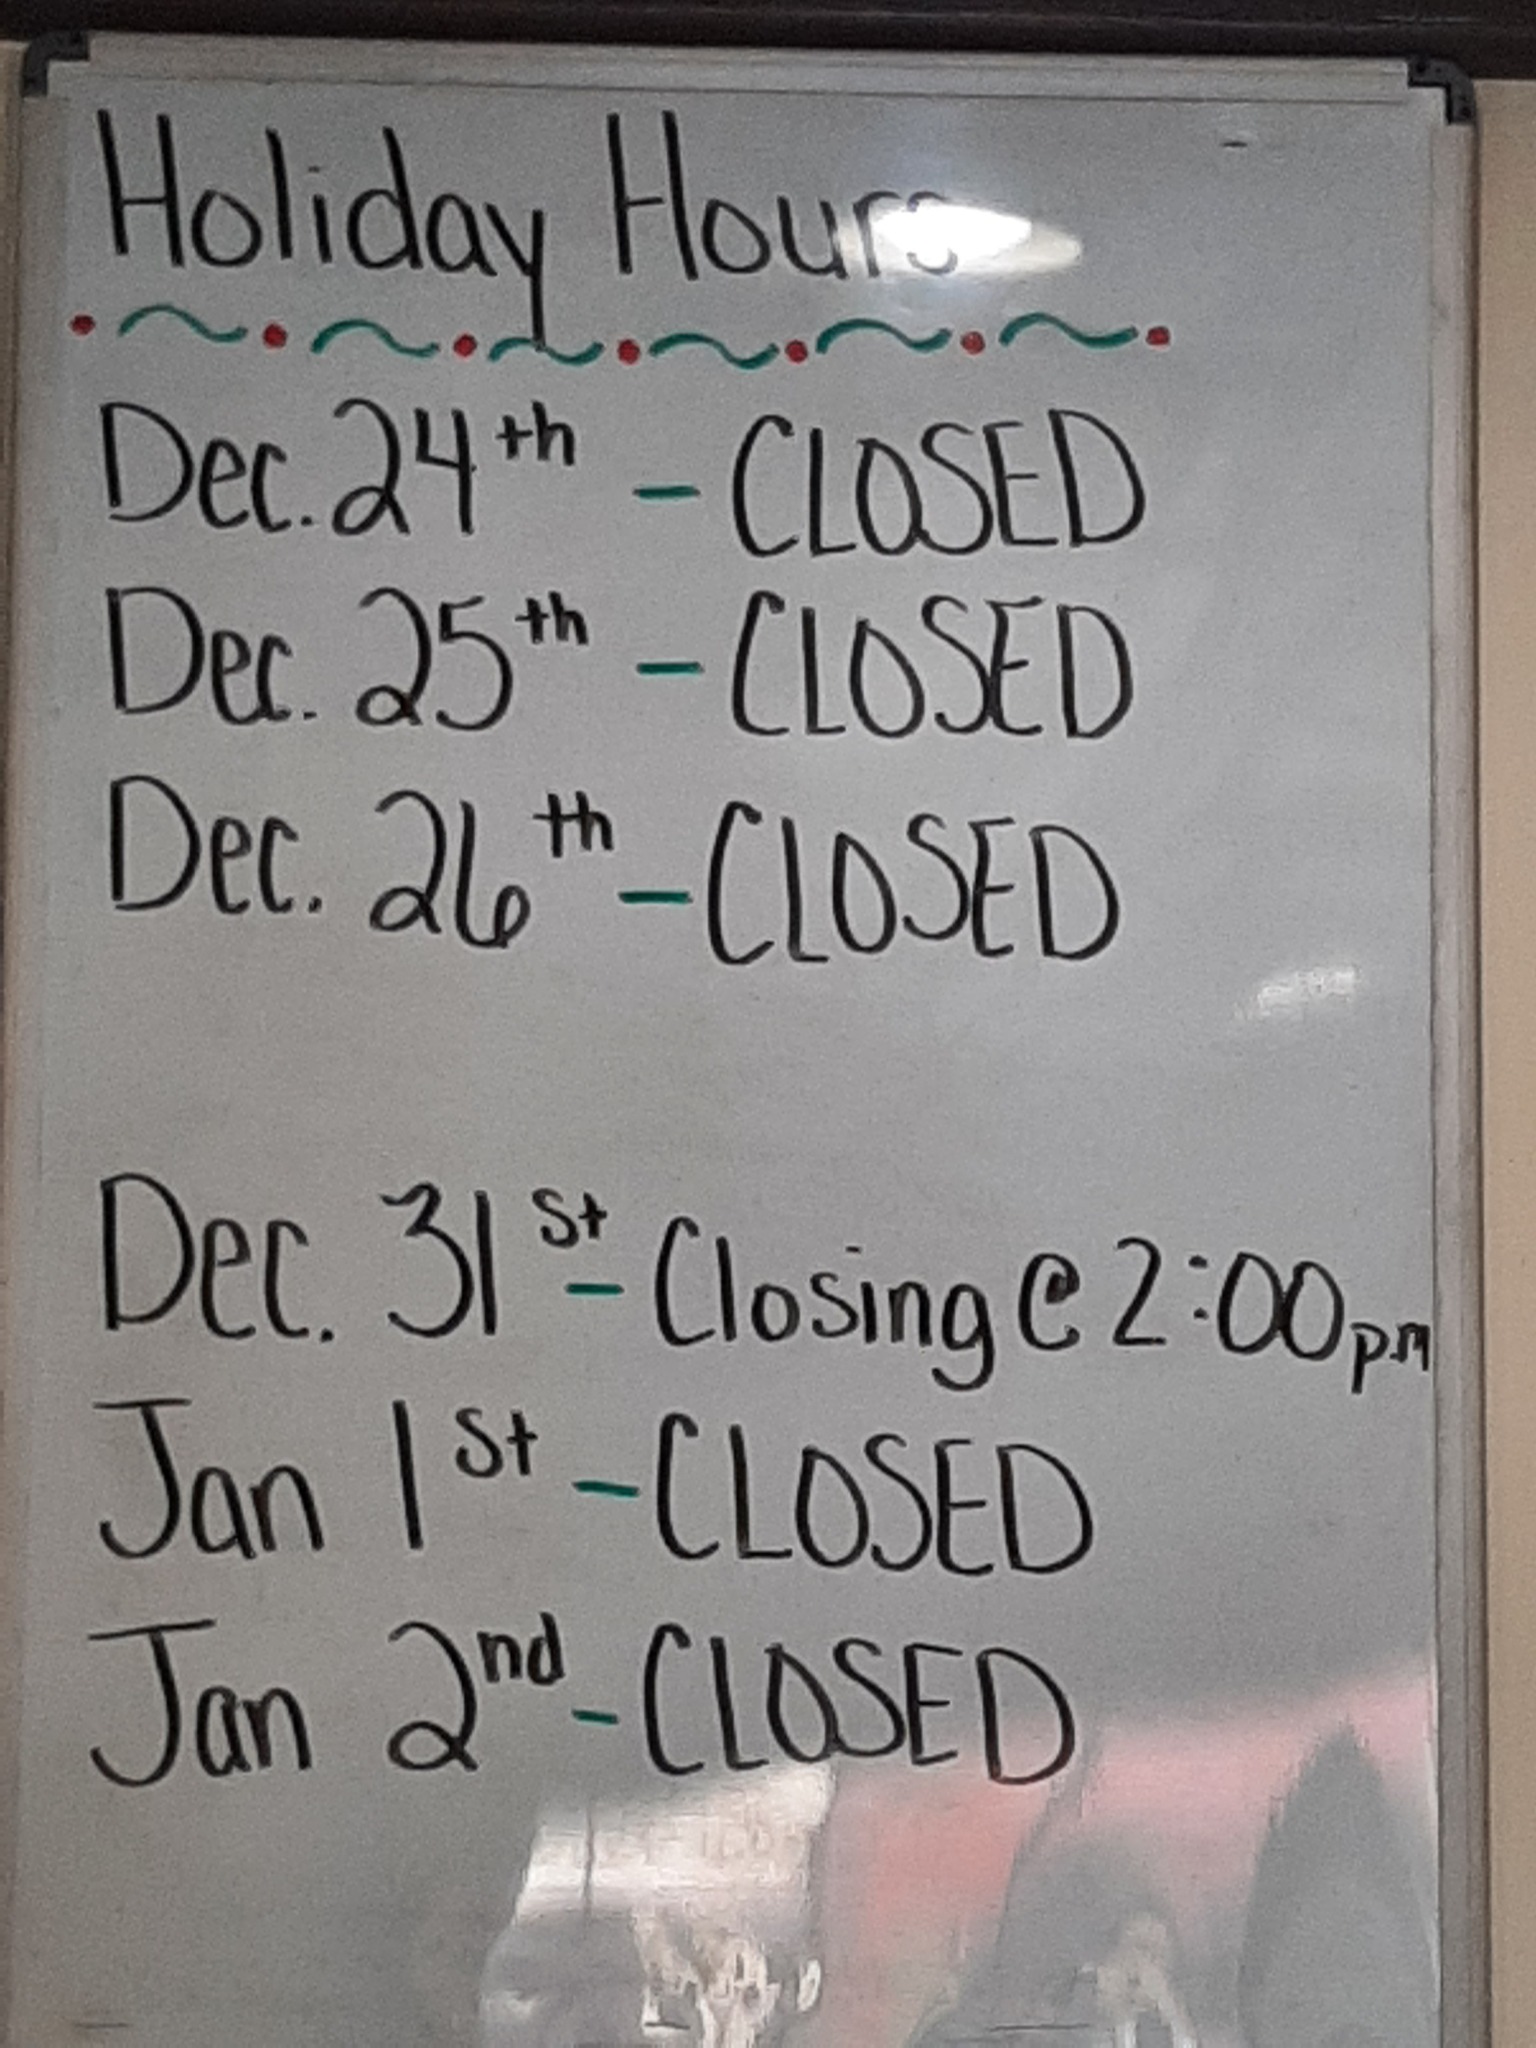 Holiday Hours
Dec. 24th - CLOSED
Dec. 25th - CLOSED
Dec. 26th - CLOSED
Dec. 31st - Closing @ 2:00pm
Jan 1st - CLOSED
Jan 2nd - CLOSED